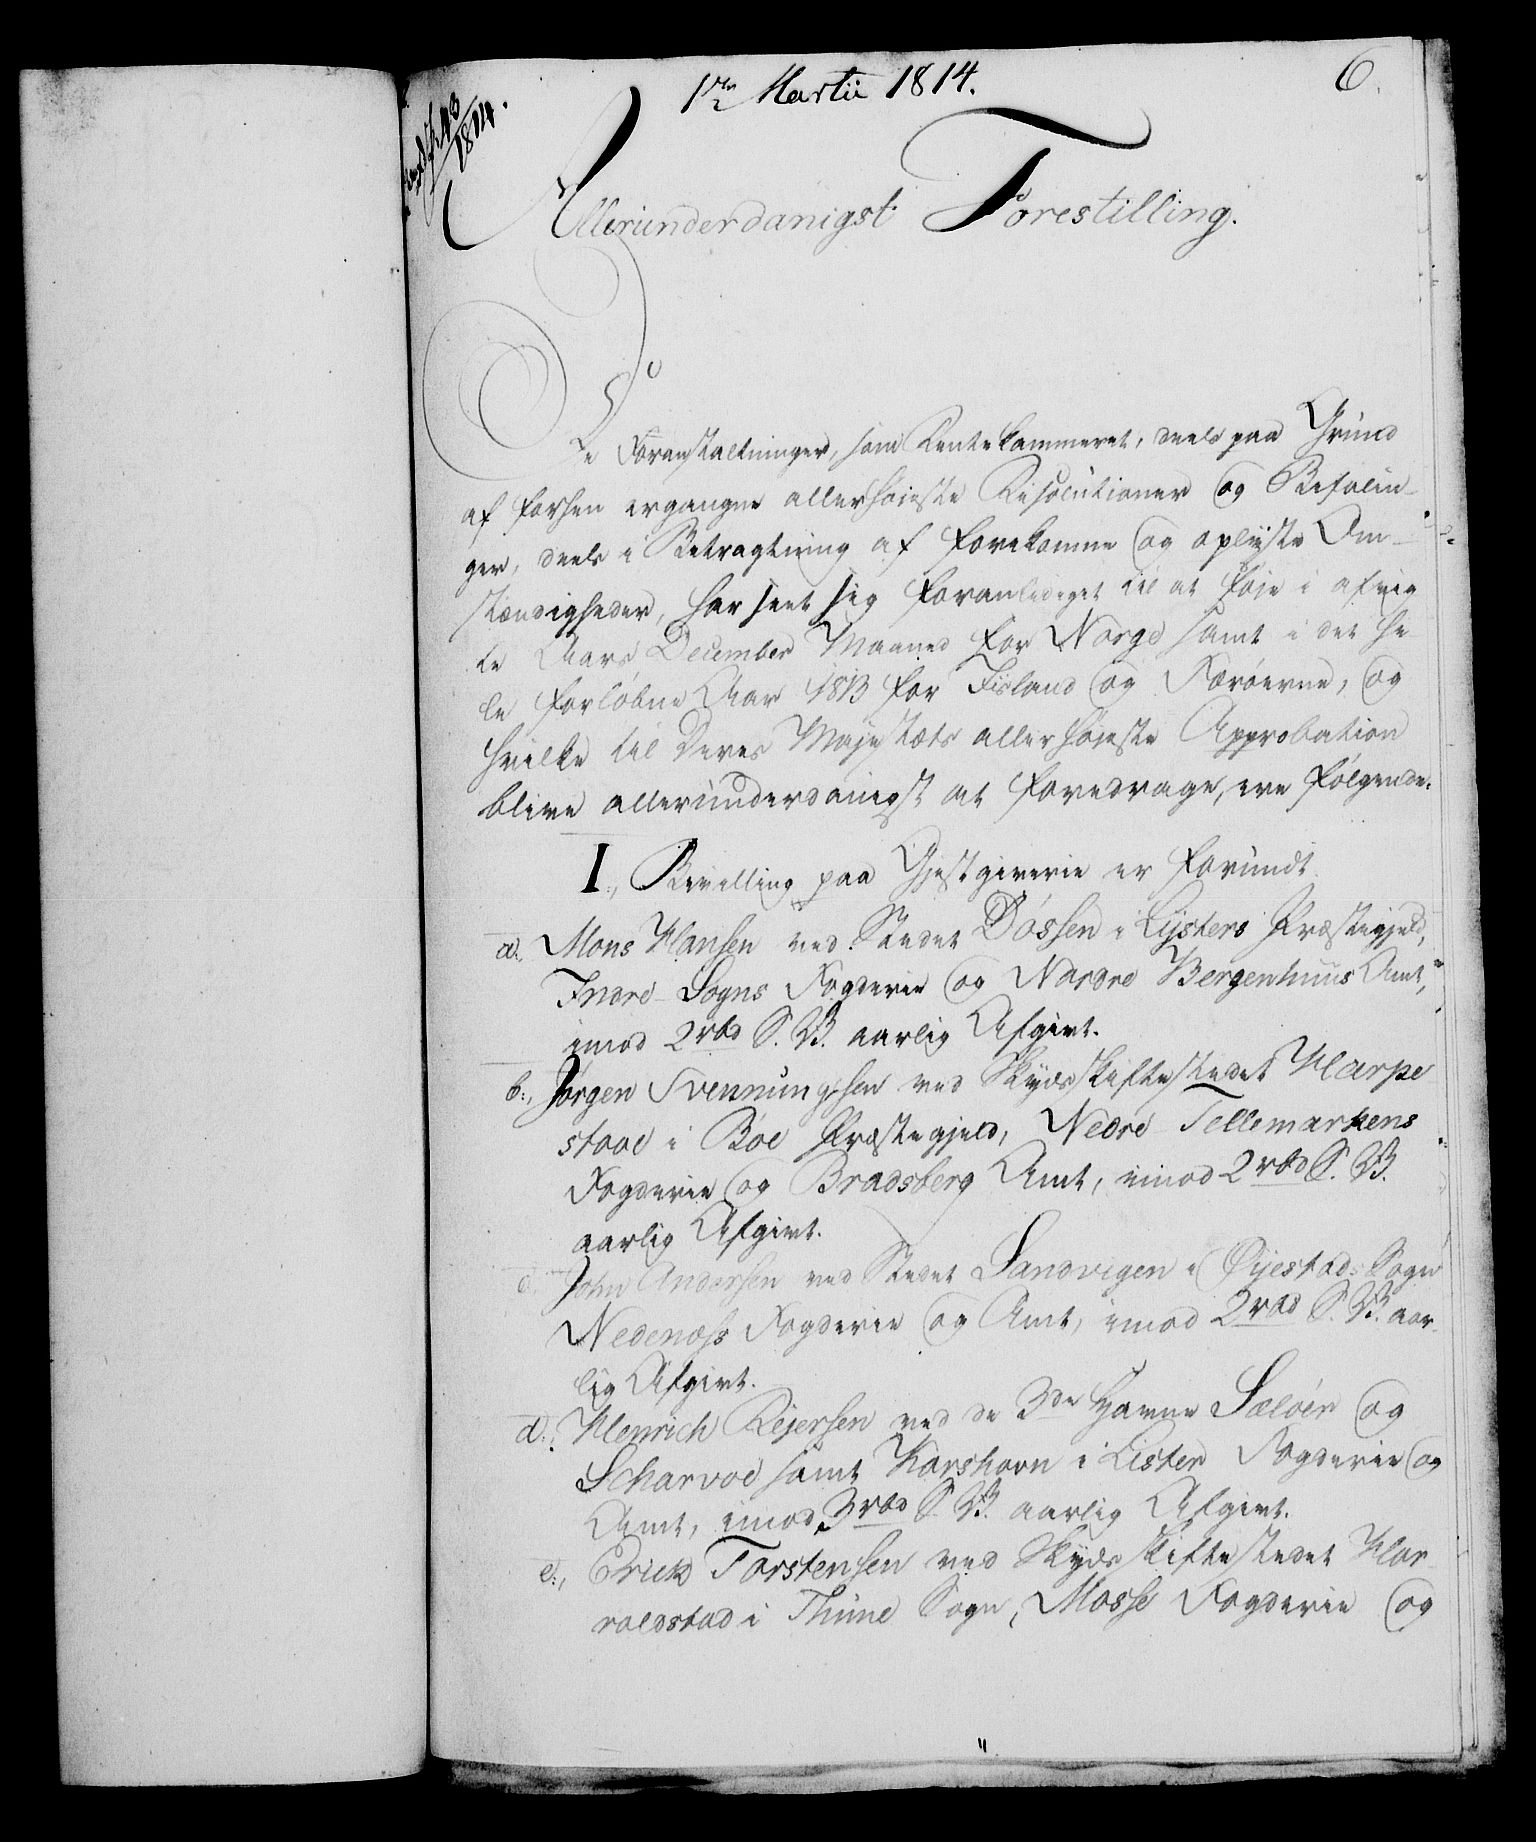 1te Martii 1814.
6.
43/1814.
Allerunderdanigst Forestilling.
De Foranstaltninger, som Rentekammeret, deels paa Grund
af forhen ergangne allerhøieste Resolutioner og Befalin-
ger, deels i Betragtning af forekomne og oplyste Om-
stændigheder, har seet sig foranlediget til at føie i afvig
te Aars December Maaned for Norge samt i det he-
le forløbne Aar 1813 for Iisland og Færøerne, og
hvilke til Deres Majestæts allerhøieste Approbation
blive allerunderdanigst at foredrage, ere følgende.
I., Bevilling paa Gjestgiverie er forundt
a., Mons Hansen ved Stedet Døssen i Lysters Præstegjeld,
Indre-Sogns Fogderie og Nordre Bergenhuus Amt,
imod 2 rbd S. V. aarlig Afgivt.
b., Jørgen Svennungsen ved Skydsskiftestedet Harpe
stoae i Bøe Præstegjeld, Nedre-Tellemarkens
Fogderie og Bradsberg Amt, imod 2 rbd S. V.
aarlig Afgivt.
c. John Andersen ved Stedet Sandvigen i Øyestads Sogn
Nedenæss Fogderie og Amt, imod 2 rbd S. V. aar-
lig Afgivt.
d., Henrich Rejersen ved de 3de Havne Sæløer og
Scharvoe samt Korshavn i Lister Fogderie og
Amt, imod 3 rbd S. V. aarlig Afgivt.
e., Erick Torstensen ved Skydsskiftestedet Har-
roldstad i Thune Sogn, Mosse Fogderie og